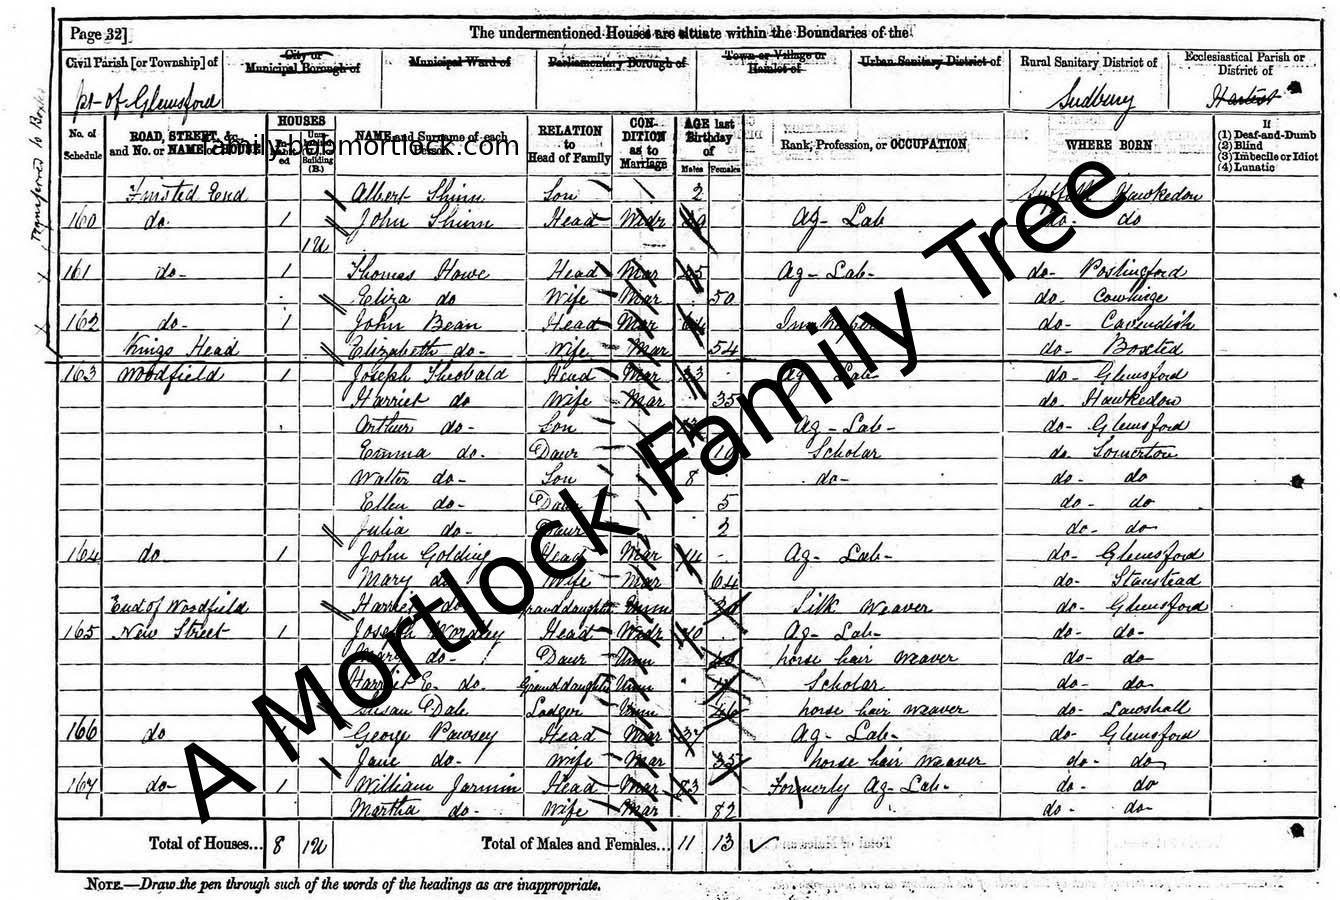 Page 32] The undermentioned Houses are situate within the Boundaries of the
Civil Parish [or Township] of City or Municipal Borough of Municipal Ward of Parliamentary Borough of Town or Village or Hamlet of Urban Sanitary District of Rural Sanitary District of Ecclesiastical Parish or District of
pt of Glemsford Sudbury Hartest
No. of Schedule ROAD, STREET, &c., and No. or NAME of HOUSE HOUSES NAME and Surname of each Person RELATION to Head of Family CONDITION as to Marriage AGE last Birthday of Males Females Rank, Profession, or OCCUPATION WHERE BORN If (1) Deaf-and-Dumb (2) Blind (3) Imbecile or Idiot (4) Lunatic
family.bobmortlock.com
Albert Shinn Son 2 Suffolk Hawkedon
160 do 1 John Shinn Head Widr Ag - Lab do do
1U
161 do- 1 Thomas Howe Head Mar Ag - Lab- do- Poslingford
Eliza do Wife Mar 50 do- Cowlinge
162 do- 1 John Bean Head Mar do- Cavendish
Kings Head Elizabeth do- Wife Mar 54 do- Boxted
163 Woodfield 1 Joseph Theobald Head Mar 33 Ag Lab- do- Glemsford
Harriet do Wife Mar 35 do Hawkedon
Arthur do- Son Ag - Lab- do- Glemsford
Emma do- Daur 10 Scholar do Somerton
Walter do- Son 8 do- do- do
Ellen do- Daur 5 do- do
Julia do- Daur 2 do- do
164 do 1 John Golding Head Mar Ag- Lab- do- Glemsford
Mary do Wife Mar 64 do- Stanstead
End of Woodfield Harriet do Granddaughter Unm Silk Weaver do- Glemsford
165 New Street 1 Joseph Head Widr Ag- Lab- do- do-
Mary do- Daur Unm horse hair weaver do- do
Harriet E. do- Granddaughter Unm Scholar do- do
Susan Dale Lodger Unm horse hair weaver do- Lawshall
166 do George Pawsey Head Mar Ag- Lab- do- Glemsford
Jane do- Wife Mar 35 horse hair weaver do- do
167 do- 1 William Jarmin Head Mar 83 Formerly Ag- Lab- do- do
Martha do- Wife Mar 82 do- do-
Total of Houses... 8 1U Total of Males and Females... 11 13
NOTE.—Draw the pen through such of the words of the headings as are inappropriate.
A Mortlock Family Tree